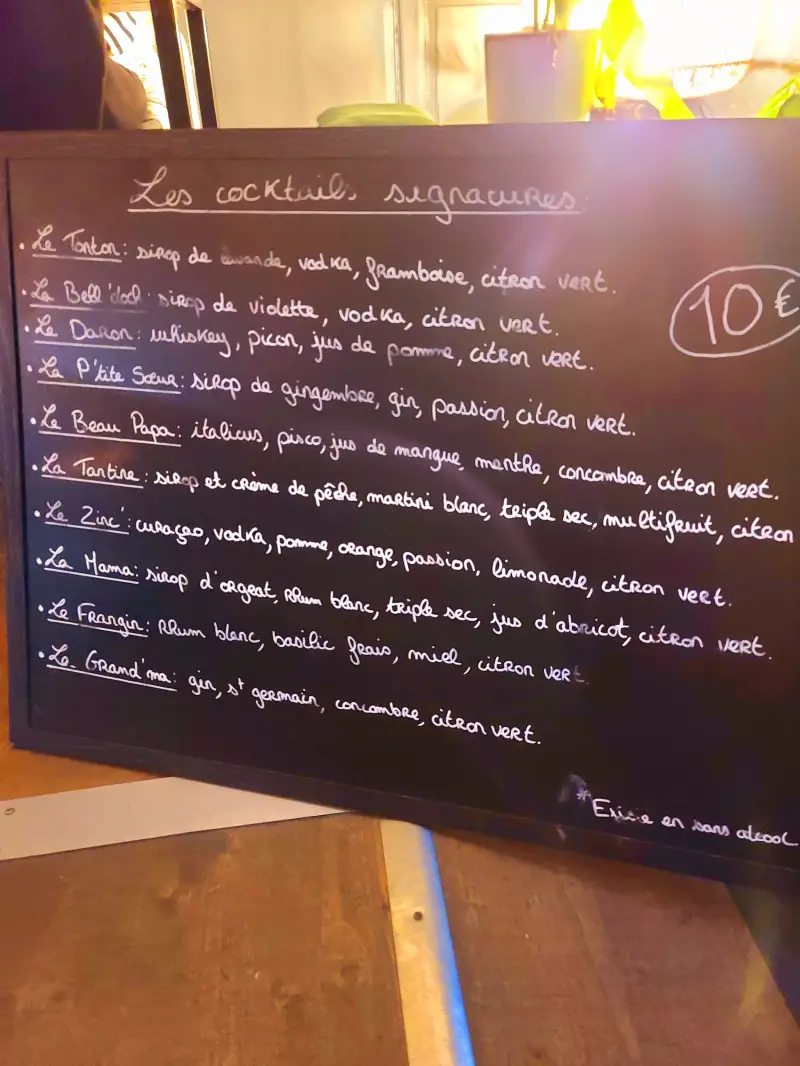 Les cocktails signatures:
• Le Tonton: sirop de lavande, vodka, framboise, citron vert.
• La Bell'doch: sirop de violette, vodka, citron vert.
• Le Daron: whiskey, picon, jus de pomme, citron vert.
10€
• La P'tite Sœur: sirop de gingembre, gin, passion, citron vert.
• Le Beau Papa: italicus, pisco, jus de mangue, menthe, concombre, citron vert.
• La Tantine: sirop et crème de pêche, martini blanc, triple sec, multifruit, citron
• Le Zinc': curaçao, vodka, pomme, orange, passion, limonade, citron vert.
• La Mama: sirop d'orgeat, rhum blanc, triple sec, jus d'abricot, citron vert.
• Le Frangin: rhum blanc, basilic frais, miel, citron vert.
• La Grand'ma: gin, st germain, concombre, citron vert.
*Existe en sans alcool.